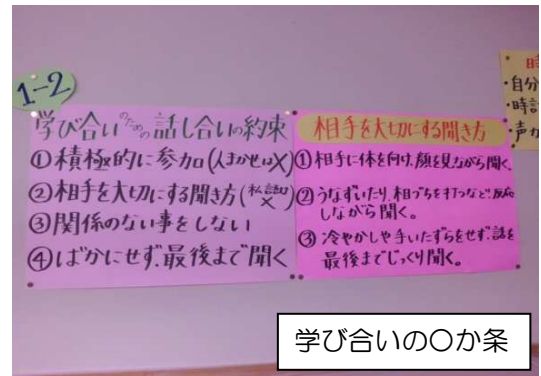 1-2
学び合いのための話し合いの約束
①積極的に参加(人まかせは×)
②相手を大切にする聞き方(私語×)
③関係のない事をしない
④ばかにせず、最後まで聞く
相手を大切にする聞き方
①相手に体を向け、顔を見ながら聞く。
②うなずいたり、相づちを打つなど、反応
しながら聞く。
③冷やかしや手いたずらをせず、話を
最後までじっくり聞く。
・自分
・時計
・声か
学び合いの〇か条